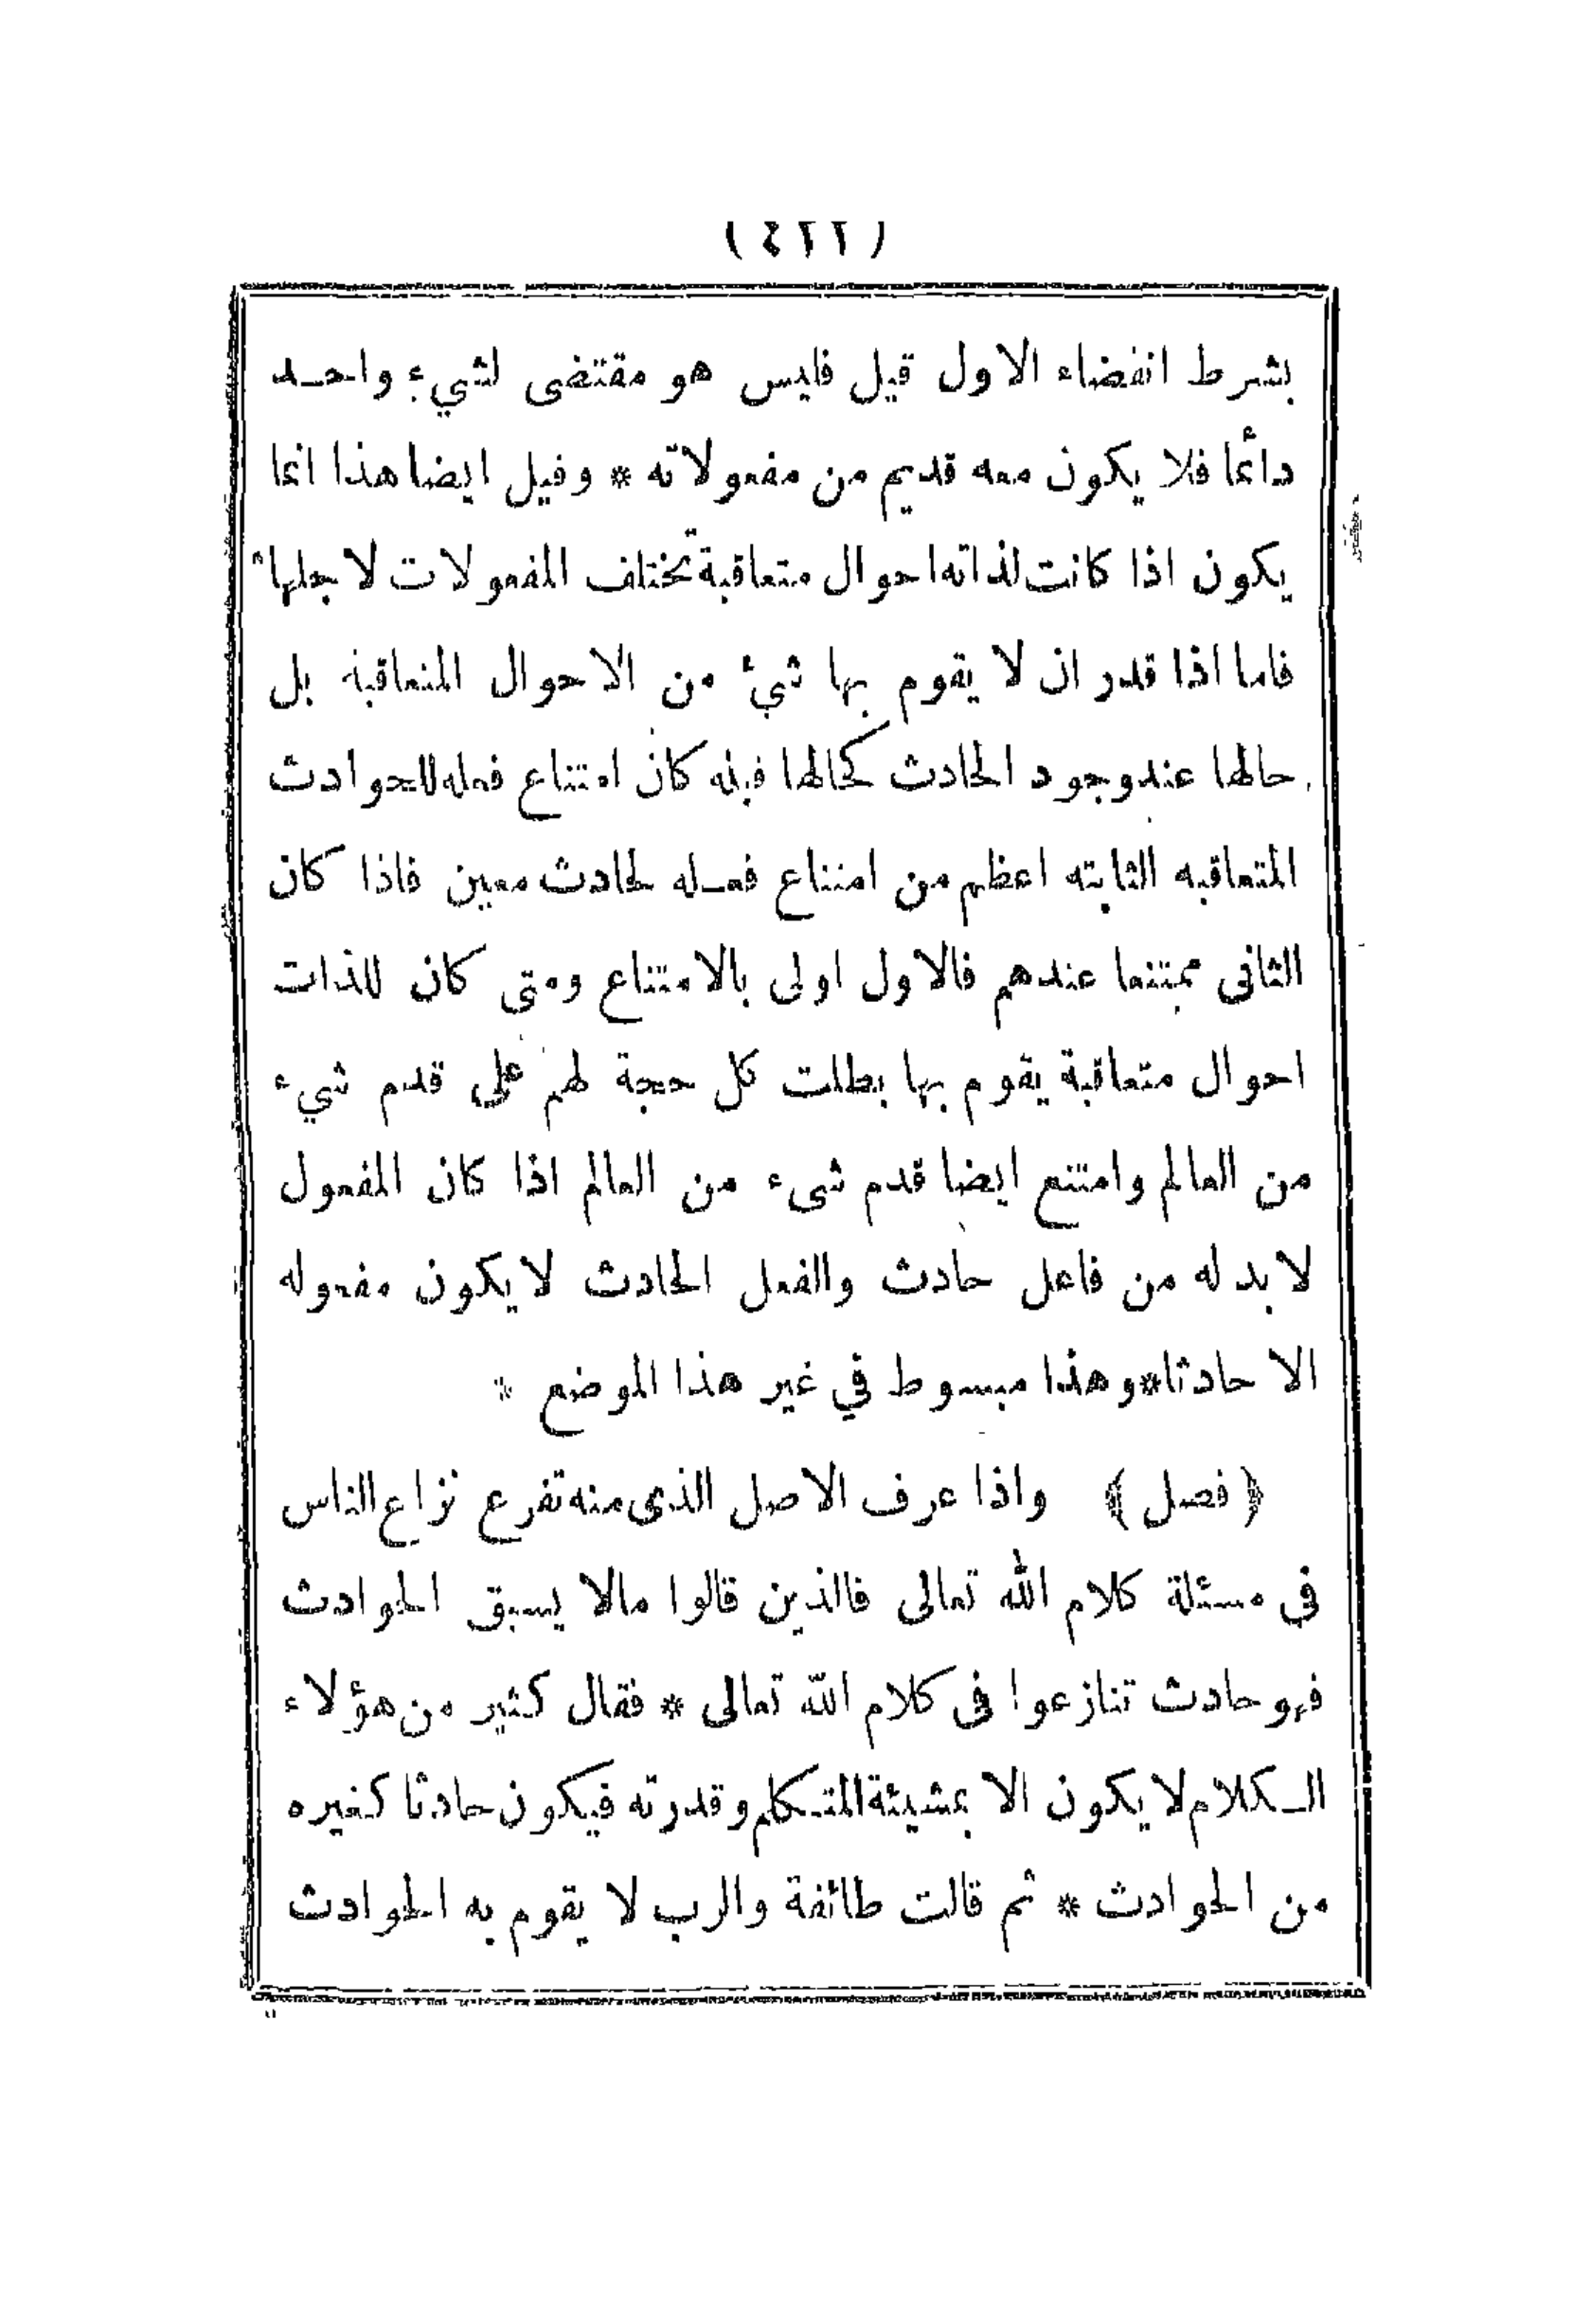 (٤٢٢)
بشرط انقضاء الاول قيل فليس هو مقتضى لشيء واحد
دائما فلا يكون معه قديم من مفعولاته * وقيل ايضا هذا انما
يكون اذا كانت لذاته احوال متعاقبة تختلف المفعولات لاجلها
فاما اذا قدر ان لا يقوم بها شيء من الاحوال المتعاقبة بل
حالها عند وجود الحادث كحالها قبله كان امتناع فعله للحوادث
المتعاقبه الثابته اعظم من امتناع فعله لحادث معين فاذا كان
الثاني ممتنعا عندهم فالاول اولى بالامتناع ومتى كان للذات
احوال متعاقبة يقوم بها بطلت كل حجة لهم على قدم شيء
من العالم وامتنع ايضا قدم شيء من العالم اذا كان المفعول
لا بد له من فاعل حادث والفعل الحادث لا يكون مفعوله
الا حادثا * وهذا مبسوط في غير هذا الموضع *
﴿ فصل ﴾ واذا عرف الاصل الذى منه تفرع نزاع الناس
فى مسئلة كلام الله تعالى فالذين قالوا مالا يسبق الحوادث
فهو حادث تنازعوا فى كلام الله تعالى * فقال كثير من هؤلاء
الكلام لا يكون الا بمشيئة المتكلم وقدرته فيكون حادثا كغيره
من الحوادث * ثم قالت طائفة والرب لا يقوم به الحوادث